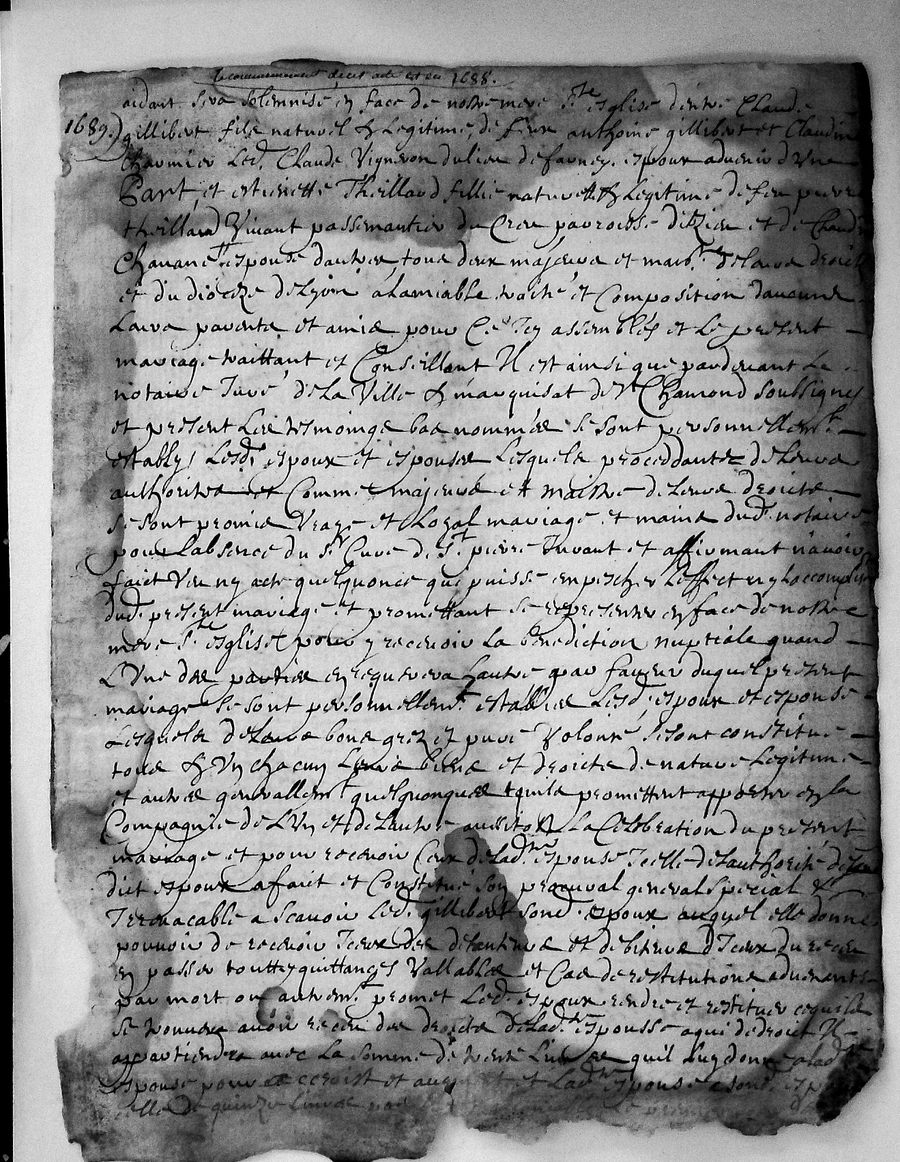 le commencement de cet acte est en 1688.
aidant sera solemnisé en face de nostre mere Ste esglise d'entre Claude
1689.) gillibert filz naturel & Legitime, de feux anthoine gillibert et Claudine
Charmier Led. Claude Vigneron du lieu de farney espoux advenir d'Une
Part, et estiennette Theillard fillie naturelle & Legitime de feu pierre
theillard Vivant passemantier du Creu parroisse d'Izieu et de
Chavane espouse d'autre, tous deux majeurs et de leurs droictz
et du dioceze de Lyon a Lamiable traicté et Composition d'aucuns
Leurs parents et amis pour Ce Icy assemblés et Le present
mariage traittant et Conseillant Il est ainsi que pardevant Le
notaire Juré de La Ville & marquisat de St Chamond Soubsigné
et present Les tesmoings bas nommés se sont personnellemt
establys Lesd. espoux et espouse Lesquels proceddants de Leurs
authorités et Comme majeurs et maistre de Leurs droicts
se sont promis Vray et Loyal mariage et mains dud. notaire
pour Labsence du Sr Curé de St pierre Jurant et affirmant n'avoir
faict Veu ny acte quelquonce qui puisse empescher L'effect ny Laccomplis
dud. present mariage et promettant se representer en face de nostre
mere Ste esglise pour y recevoir La benediction nuptiale quand
L'Une des parties en requerera Lautre par faveur duquel present
mariage se sont personnellemt establies Lesd. espoux et espouse
Lesquels de Leurs bons grez et pure Volonté se sont constitué
tous & Un chacun Leurs biens et droicts de nature Legitime
et autres generallemt quelquonques quils promettent apporter en La
Compagnie de L'Un et de Lautre aussitost La Celebration du present
mariage et pour recevoir Ceux de Lad. espouse Icelle de Lauthorité de
dict espoux a fait et Constitué son procureur general special &
Irrevocable a Scavoir Led. gillibert sond. espoux auquel elle donne
pouvoir de recevoir Iceux des detenteurs et debiteurs d'Iceux du receu
en passer touttes quittances Vallables et Cas de restitutions advenants
par mort ou autremt promet Led. espoux rendre et restituer ce quil
se trouvera avoir receu des droicts de Lad. espousse a qui de droict Il
appartiendra avec La somme de trente Livres quil Luy donne a Lad.
espouse pour accroist et augment et Lad. espouse a sond.
celle de quinze Livres